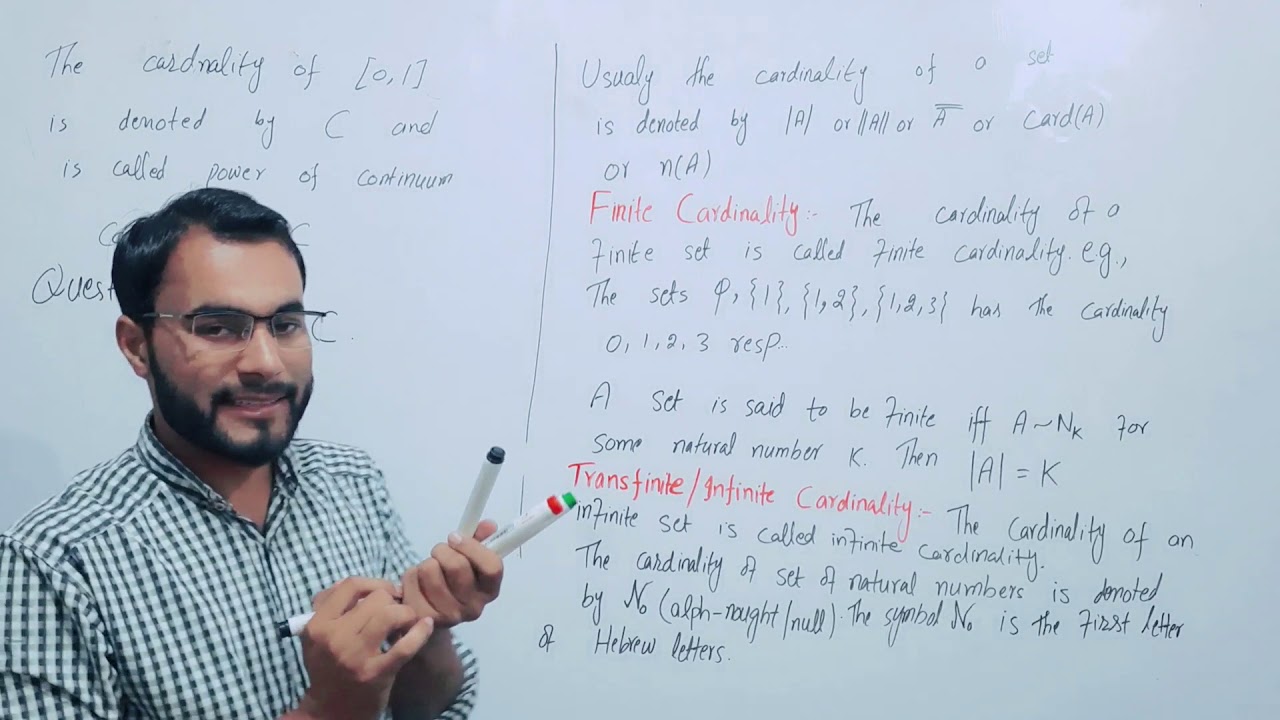 The cardnality of [0,1]
is denoted by C and
is called power of continuum
C
Quest
C.
Usualy the cardinality of a set
is denoted by |A| or ||A|| or A̿ or Card(A)
or n(A)
Finite Cardinality:- The cardinality of a
finite set is called finite cardinality. e.g.,
The sets φ, {1}, {1,2}, {1,2,3} has the cardinality
0, 1, 2, 3 resp..
A set is said to be finite iff A~Nₖ for
some natural number K. Then |A| = K
Transfinite/Infinite Cardinality:- The cardinality of an
infinite set is called infinite cardinality.
The cardinality of set of natural numbers is denoted
by ℵ₀ (alph-nought/null). The symbol ℵ₀ is the first letter
of Hebrew letters.